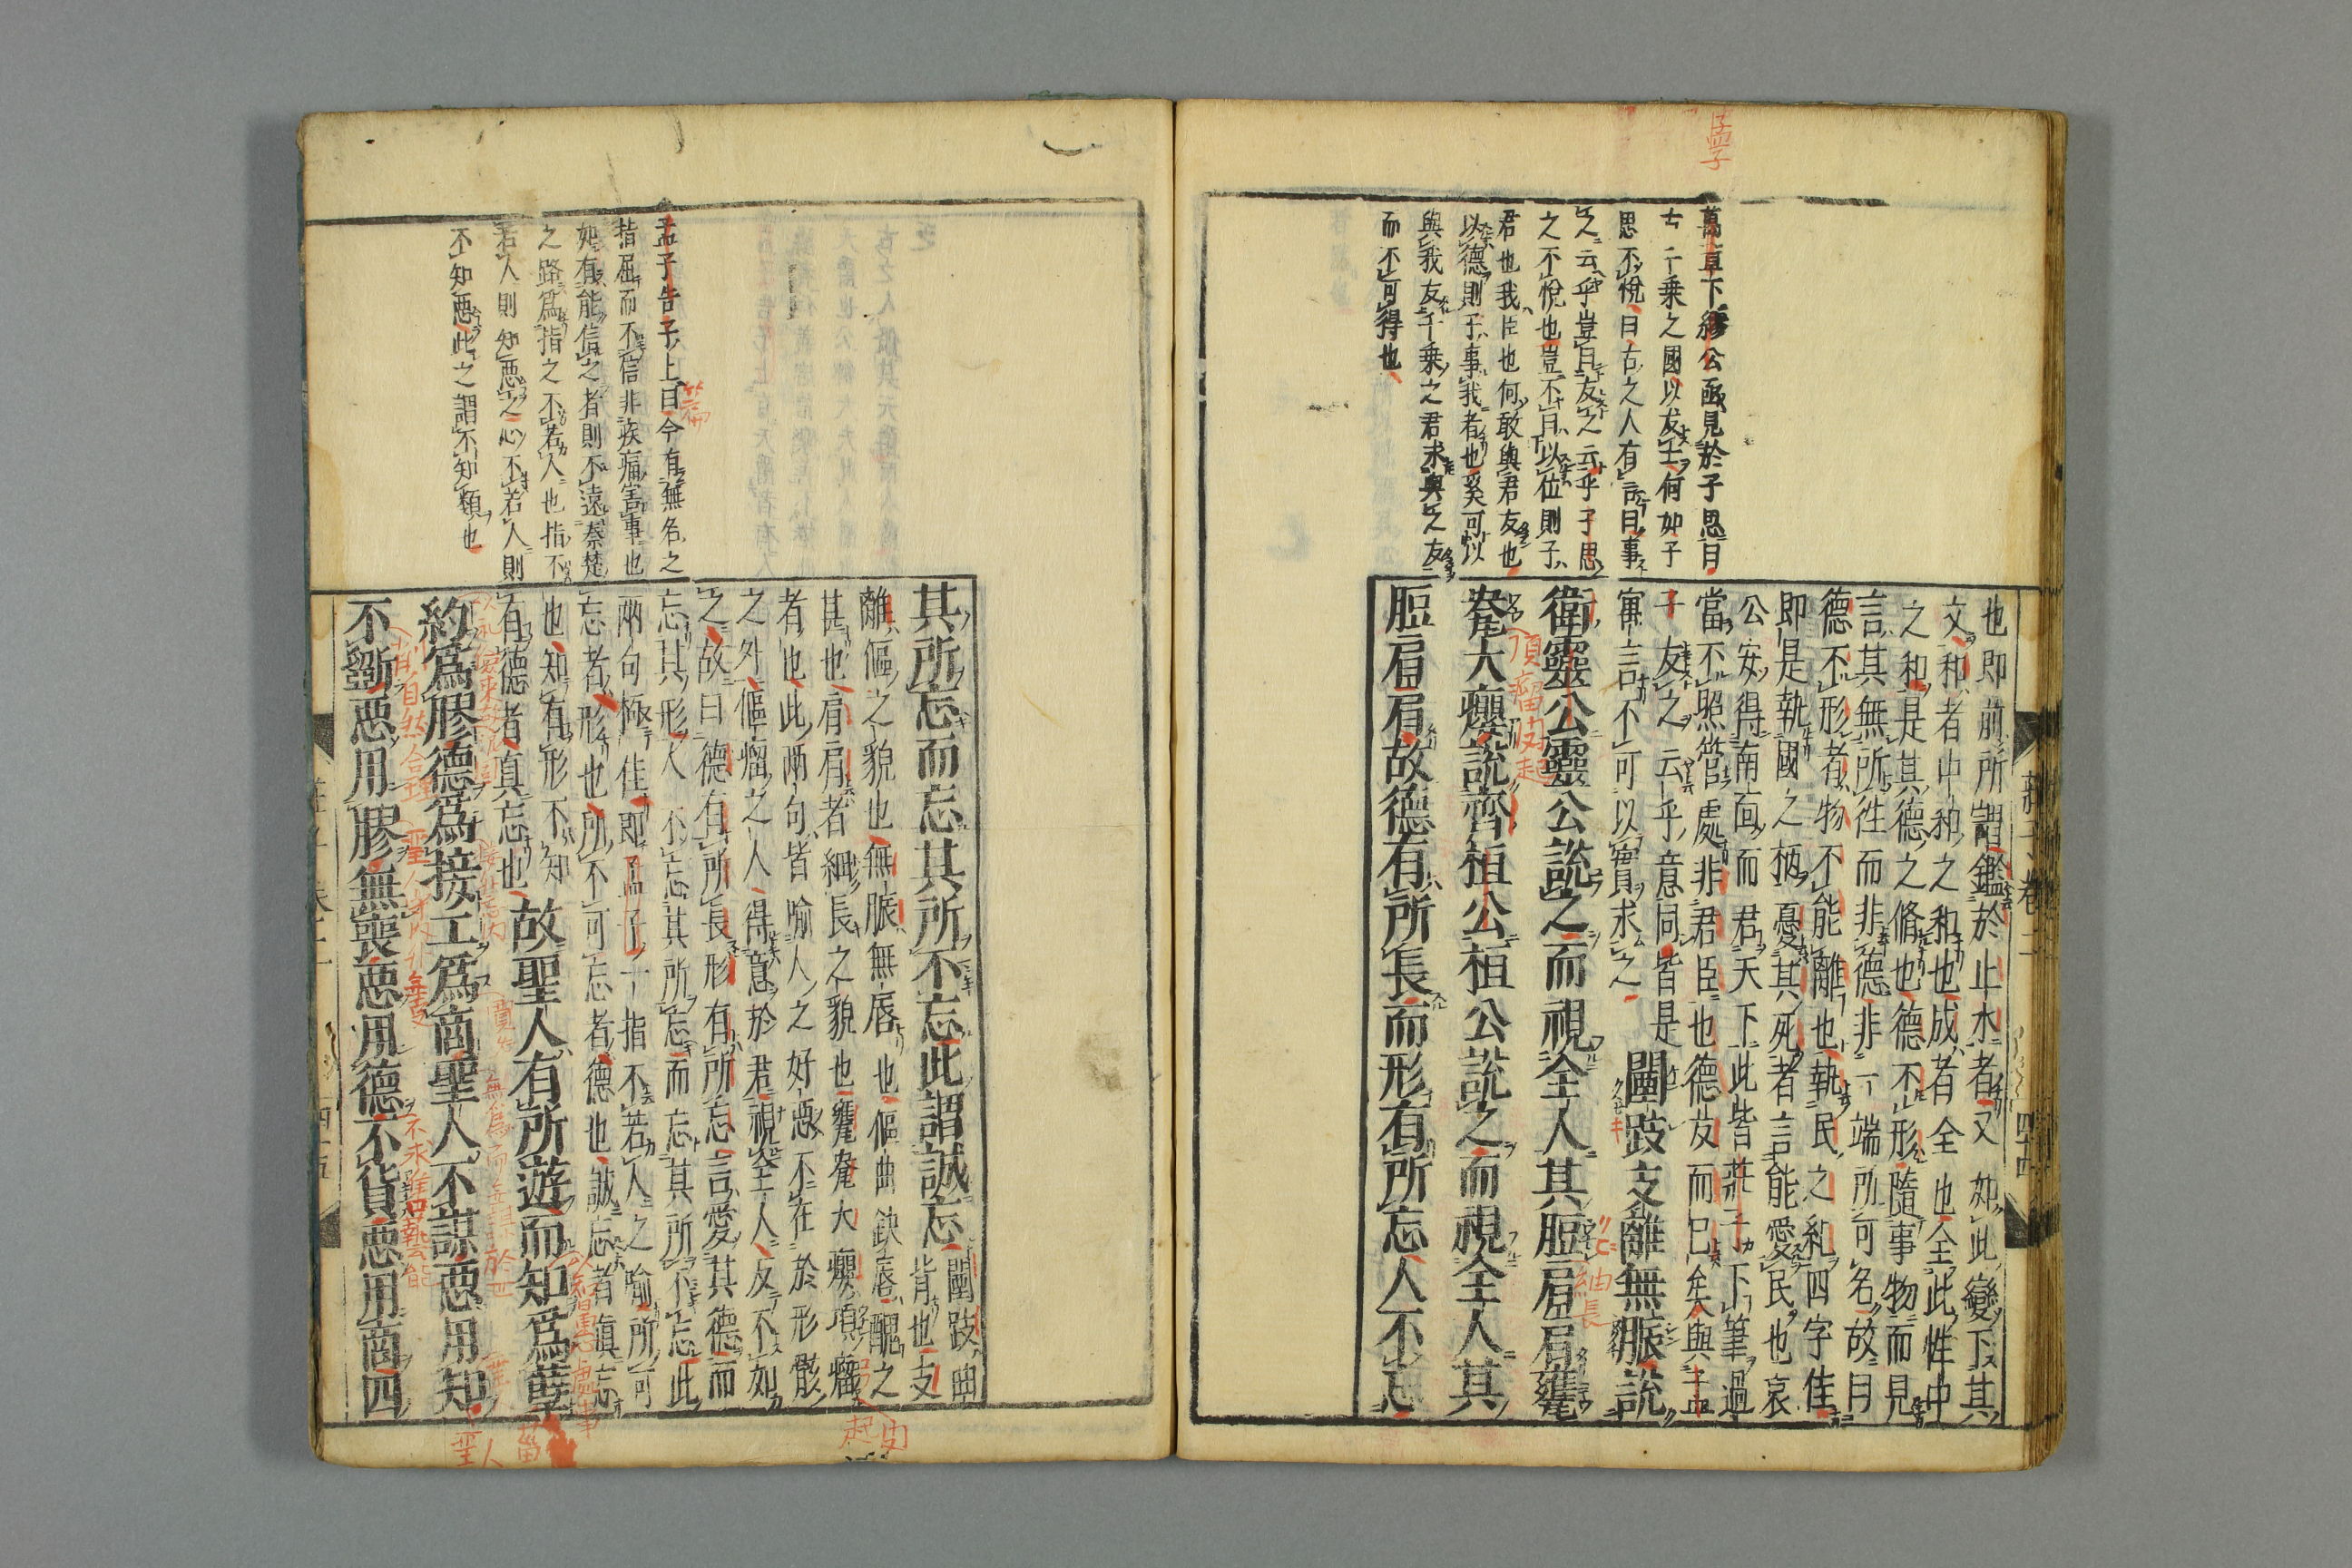 孟子
萬章下繆公亟見於子思曰
古千乗之國以友士何如子
思不悅曰古之人有言曰事
之云乎豈曰友之云乎子思
之不悅也豈不曰以位則子
君也我臣也何敢與君友也
以德則子事我者也奚可以
與我友千乗之君求與之友
而不可得也
也即前所謂鑑於止水者又如此變下其
文和者中和之和也成者全也全此性中
之和是其德之脩也德不形隨事物而見
言其無所徃而非德非一端所可名故曰
德不形者物不能離也執民之紀四字佳
即是執國之柄憂其死者言能愛民也哀
公安得南面而君天下此皆莊子下筆過
當不照管處非君臣也德友而已矣與孟
子友之云乎意同皆是
寓言不可以實求之
闉跂支離無脤說
衛靈公靈公說之而視全人其脰肩肩甕
㼜大癭說齊桓公桓公說之而視全人其
脰肩肩故德有所長而形有所忘人不忘
莊子 卷二
四十四
孟子告子上曰今有無名之
指屈而不信非疾痛害事也
如有能信之者則不遠秦楚
之路爲指之不若人也指不
若人則知惡之心不若人則
不知惡此之謂不知類也
篇
其所忘而忘其所不忘此謂誠忘
闉跂曲
背也支
離傴之貌也無脤無唇也傴曲缺唇醜之
甚也肩肩者細長之貌也甕㼜大癭項瘤
者也此兩句皆喻人之好惡不在於形骸
之外傴瘤之人得意於君視全人反不如
之故曰德有所長形有所忘言愛其德而
忘其形人不忘其所忘而忘其所不忘此
兩句極佳即孟子一指不若人之喻所可
忘者形也所不可忘者德也誠忘者眞忘
也知有形不知
有德者真忘也
故聖人有所遊而知爲孽
約爲膠德爲接工爲商聖人不謀惡用知
不斵惡用膠無喪惡用德不貨惡用商四